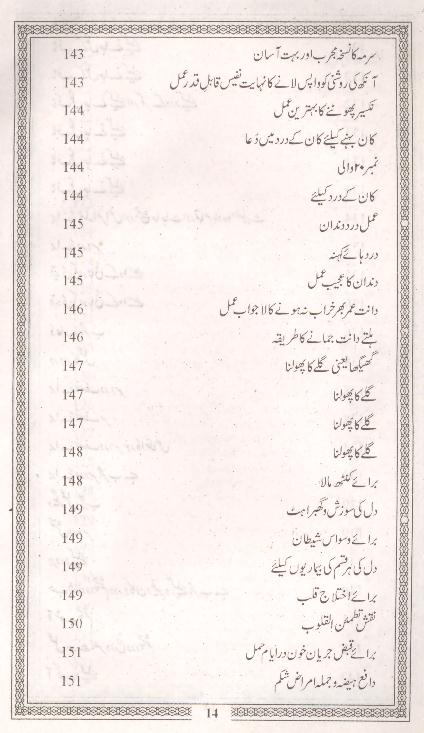 سرمہ کا نسخہ مجرب اور بہت آسان 143
آنکھ کی روشنی کو واپس لانے کا نہایت نفیس قابلِ قدر عمل 143
نکسیر پھوٹنے کا بہترین عمل 144
کان بہنے کیلئے کان کے درد میں دُعا 144
نمبر ۲۰ والی 144
کان کے درد کیلئے 144
عمل درد دندان 145
درد ہائے کہنہ 145
دندان کا عجیب عمل 145
دانت عمر بھر خراب نہ ہونے کا لاجواب عمل 146
ہلتے دانت جمانے کا طریقہ 146
گھیگھا یعنی گلے کا پھولنا 147
گلے کا پھولنا 147
گلے کا پھولنا 147
گلے کا پھولنا 148
برائے کنٹھ مالا 148
دل کی سوزش و گھبراہٹ 149
برائے وسواس شیطان 149
دل کی ہر قسم کی بیماریوں کیلئے 149
برائے اختلاج قلب 149
نقش تطمئن القلوب 150
برائے قبض جریان خون در ایام حمل 151
دافع ہیضہ و جملہ امراض شکم 151
14